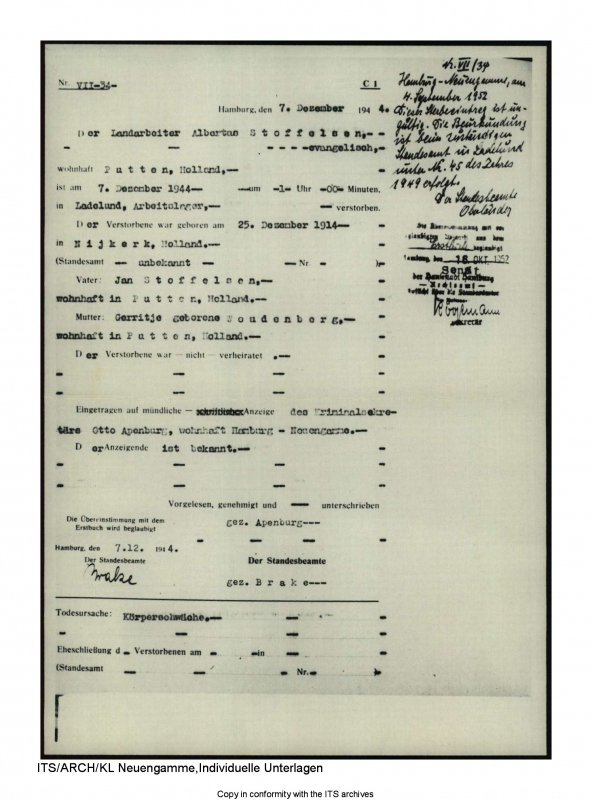 Nr. VII-34-
C 1
Hamburg, den 7. Dezember 194 4.
D er Landarbeiter Albertus S t o f f e l s e n,--
- - - - -evangelisch,--
wohnhaft P u t t e n, Holland,--
ist am 7. Dezember 1944-- um -1- Uhr -00- Minuten,
in Ladelund, Arbeitslager,-- verstorben.
D er Verstorbene war geboren am 25. Dezember 1914--
in N i j k e r k, Holland.--
(Standesamt - unbekannt - Nr. - )-
Vater: Jan S t o f f e l s e n,--
wohnhaft in P u t t e n, Holland,--
Mutter: Gerritje geborene W o u d e n b e r g,--
wohnhaft in P u t t e n, Holland.--
D er Verstorbene war - nicht - verheiratet .--
Eingetragen auf mündliche - schriftliche Anzeige des Kriminalsekre-
tärs Otto Apenburg, wohnhaft Hamburg - Neuengamme.--
D er Anzeigende ist bekannt.--
Vorgelesen, genehmigt und -- unterschrieben
Die Übereinstimmung mit dem
Erstbuch wird beglaubigt
gez. Apenburg---
Hamburg, den 7.12. 194 4.
Der Standesbeamte
Der Standesbeamte
Brake
gez. B r a k e---
Todesursache: Körperschwäche.--
Eheschließung d - Verstorbenen am - -in --
(Standesamt -- -- - Nr.- )-
Nr. VII/34
Hamburg-Neuengamme, am
4. September 1952
Dieser Sterbeeintrag ist un-
gültig. Die Beurkundung
ist beim zuständigen
Standesamt in Ladelund
unter Nr. 45 des Jahres
1949 erfolgt.
Der Standesbeamte
Oberländer
Die Übereinstimmung mit
beglaubigt
Hamburg, den 18. OKT. 1952
Senat
der Hansestadt Hamburg
- Rechtsamt -
Aufsicht über die Standesämter
Sekretär
ITS/ARCH/KL Neuengamme,Individuelle Unterlagen
Copy in conformity with the ITS archives